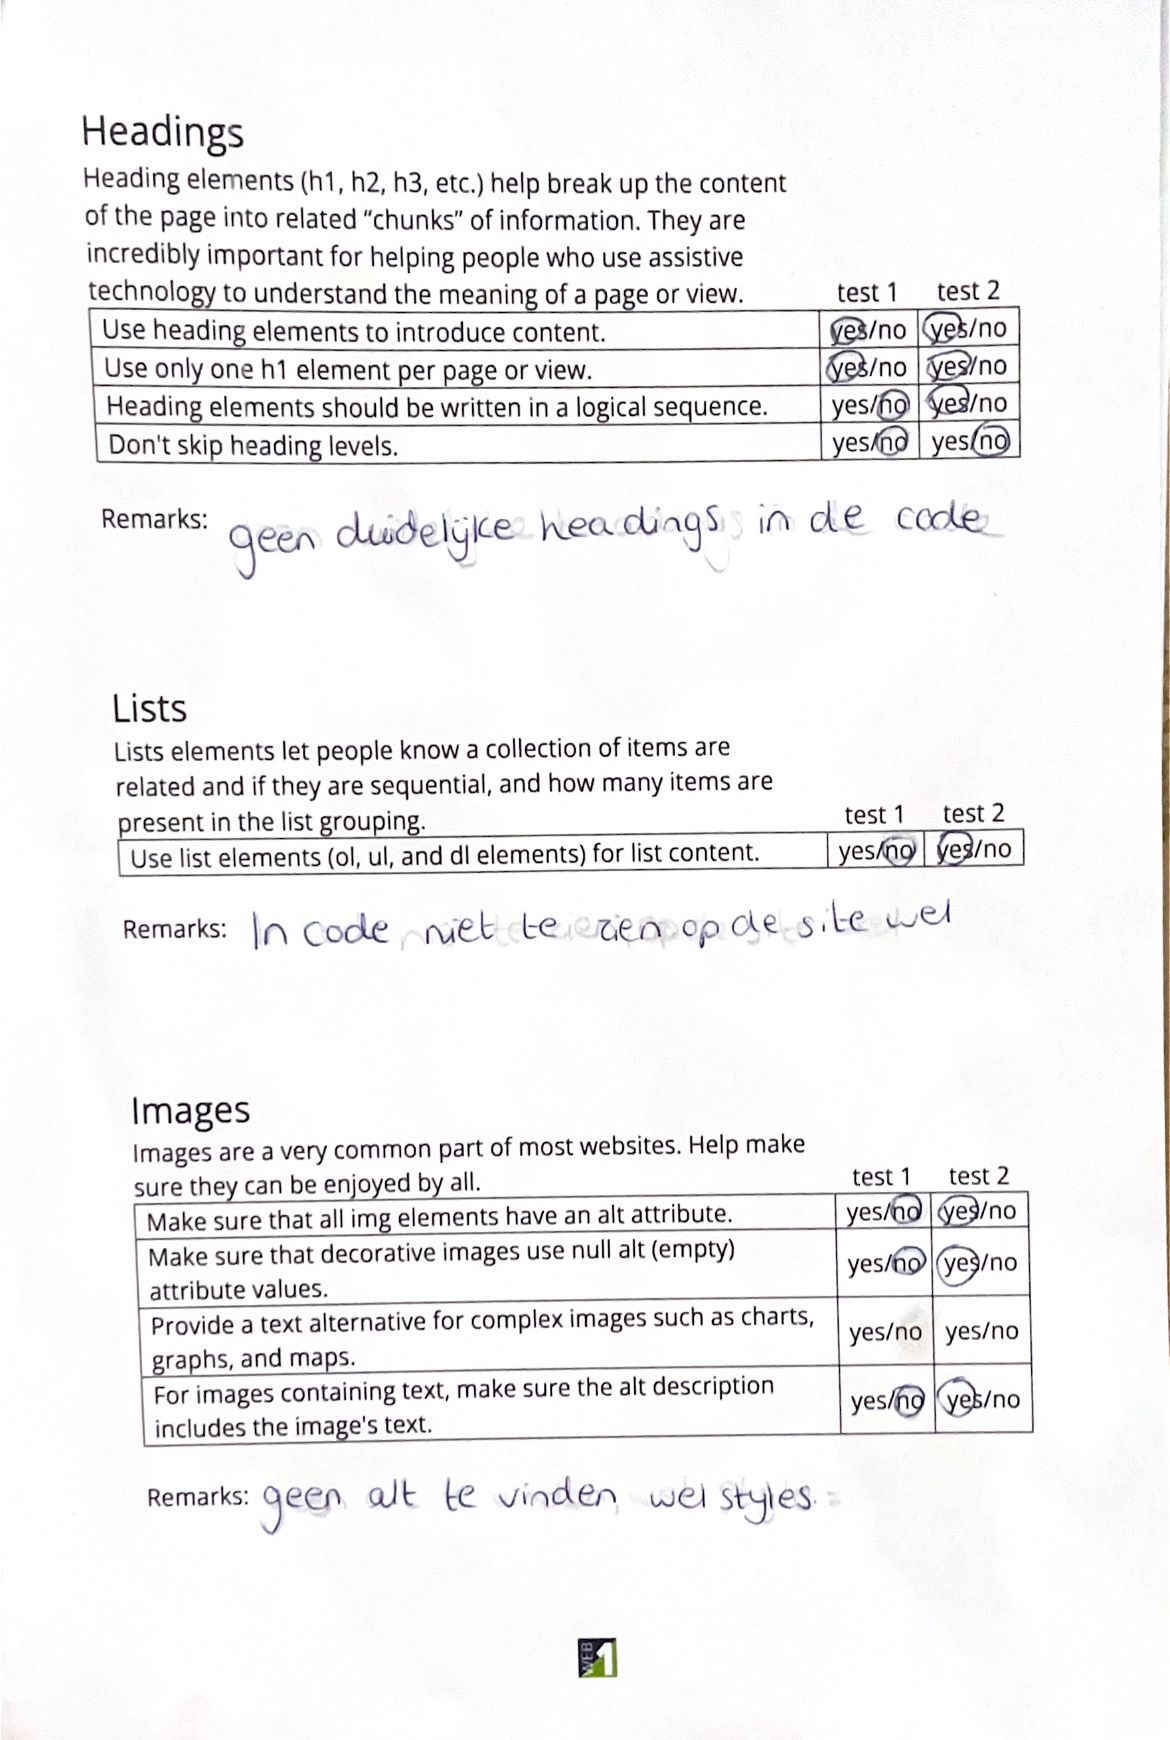 Headings
Heading elements (h1, h2, h3, etc.) help break up the content
of the page into related “chunks” of information. They are
incredibly important for helping people who use assistive
technology to understand the meaning of a page or view. test 1 test 2
Use heading elements to introduce content. yes/no yes/no
Use only one h1 element per page or view. yes/no yes/no
Heading elements should be written in a logical sequence. yes/no yes/no
Don't skip heading levels. yes/no yes/no
Remarks: geen duidelijke headings in de code
Lists
Lists elements let people know a collection of items are
related and if they are sequential, and how many items are
present in the list grouping. test 1 test 2
Use list elements (ol, ul, and dl elements) for list content. yes/no yes/no
Remarks: In code niet te zien op de site wel
Images
Images are a very common part of most websites. Help make
sure they can be enjoyed by all. test 1 test 2
Make sure that all img elements have an alt attribute. yes/no yes/no
Make sure that decorative images use null alt (empty)
attribute values. yes/no yes/no
Provide a text alternative for complex images such as charts,
graphs, and maps. yes/no yes/no
For images containing text, make sure the alt description
includes the image's text. yes/no yes/no
Remarks: geen alt te vinden wel styles.
WEB 1